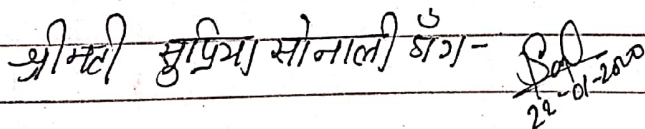 श्रीमती सुप्रिया सोनाली डाँग -
22-01-2020